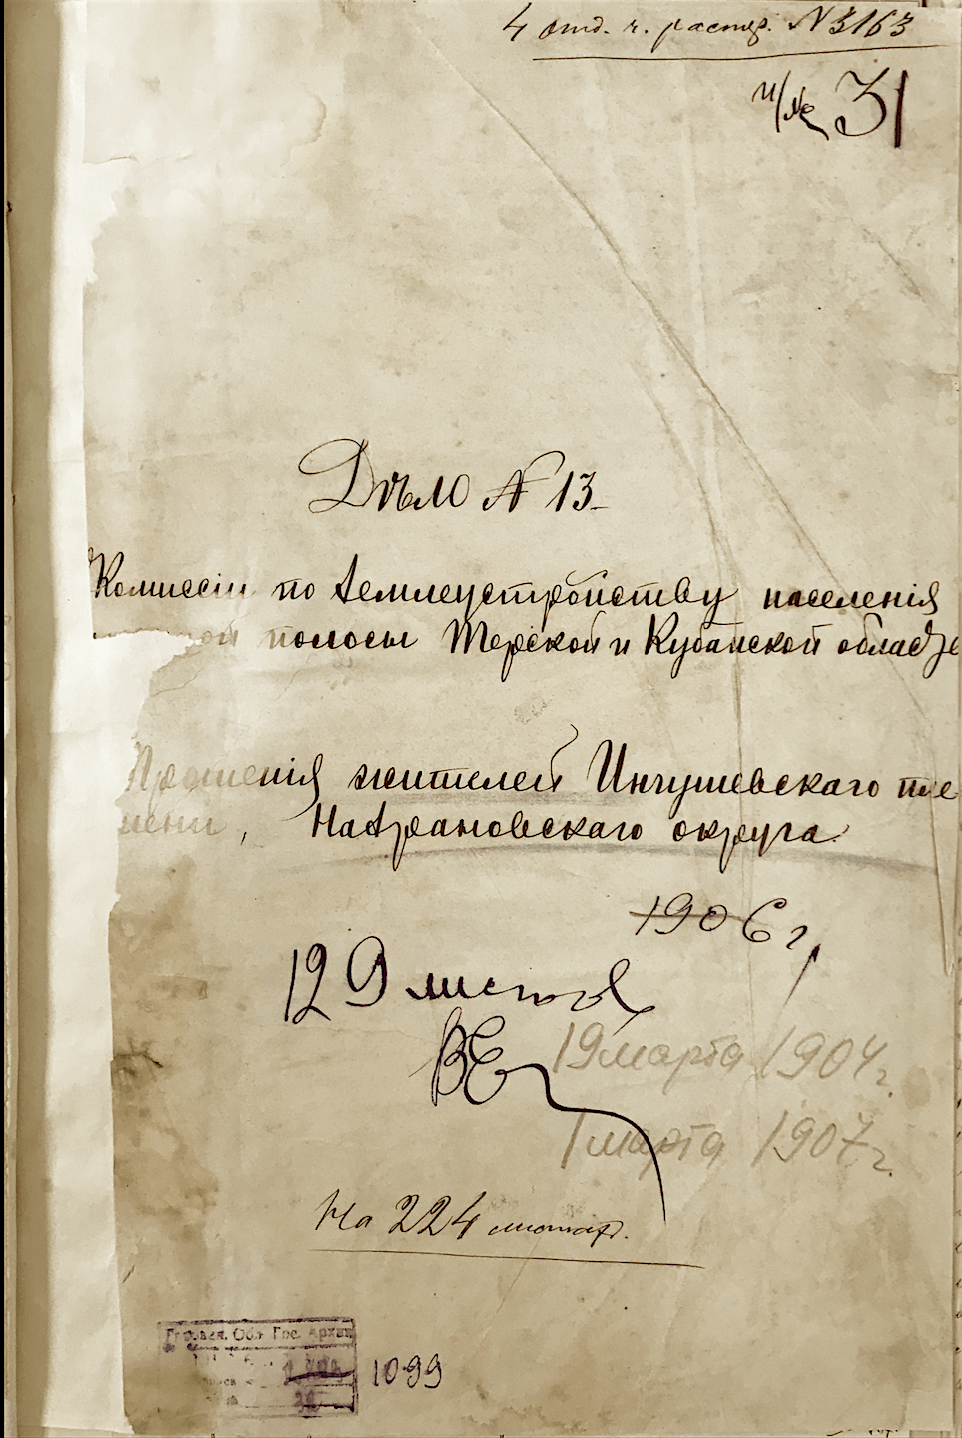 4 отд. ч. распор. N 3163
н/№ 31
Дѣло N 13
Комиссіи по землеустройству населенія
ной полосы Терской и Кубанской областе
Прошенія жителей Ингушевскаго пле
мени, Назрановскаго округа.
1906 г.
129 листов
ВЕ
19 марта 1904 г.
1 марта 1907 г.
На 224 листах.
Обл. Гос. Архив
1099